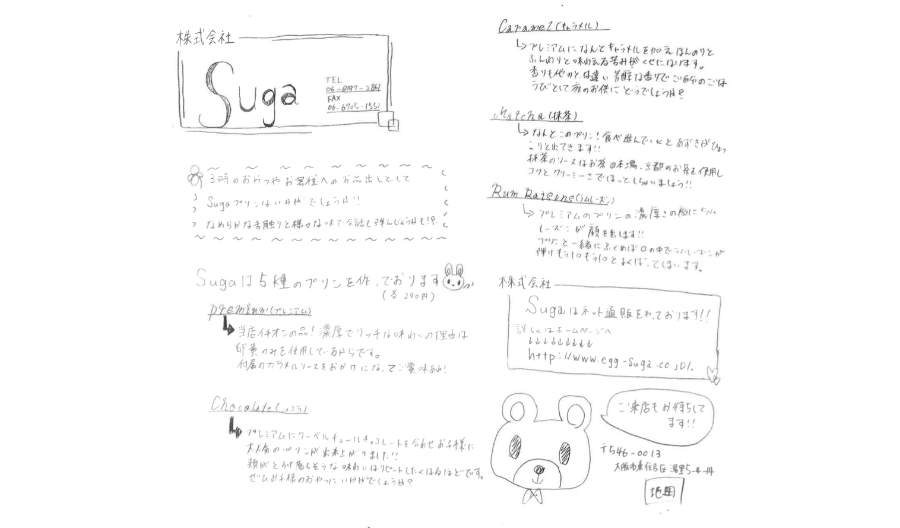 株式会社
Suga
TEL
FAX
3時のおやつやお客様へのお品出しとして
Sugaプリンはいかがでしょうか!!
なめらかな舌触りと様々な味でお話も弾んじゃうかも!?
Sugaは5種のプリンを作っております
(各240円)
premium(プレミアム)
当店イチオシの品!濃厚でリッチな味わいの理由は
卵黄のみを使用しているからです。
付属のカラメルソースをおかけになってご賞味あれ!
Chocolate(ショコラ)
プレミアムにクーベルチュールチョコレートを合わせお子様に
大人気のプリンが出来上がりました!!
頬がとけ落ちそうな味わいはリピートしたくなるほどです。
ぜひお子様のおやつにいかがでしょうか?
Caramel(キャラメル)
プレミアムになんとキャラメルを加えほんのりと
ふんわりと味わえる苦みがくせになります。
香りも他のとは違い 芳醇な香りでご自分のごほ
うびとして夜のお供に どうでしょうか?
(抹茶)
なんとこのプリン!食べ進んでいくとあずきがひょっ
こりと出てきます!!
抹茶のソースはお茶の本場、京都のお茶を使用し
コクとクリーミーさでほっとしちゃいましょう!!
Rum Raisins(ラムレーズン)
プレミアムのプリンの濃厚さの他にラム
レーズンが顔を出します!!
プリンと一緒にふくめば口の中でラムレーズンが
株式会社
Sugaはネット通販を行っております!!
詳しくはホームページへ
↓↓↓↓↓↓↓↓↓
http://www.egg-suga.co.jp/.
ご来店もお待ちして
ます!!
〒546-0013
大阪市東住吉区 湯里5-4-14
地図